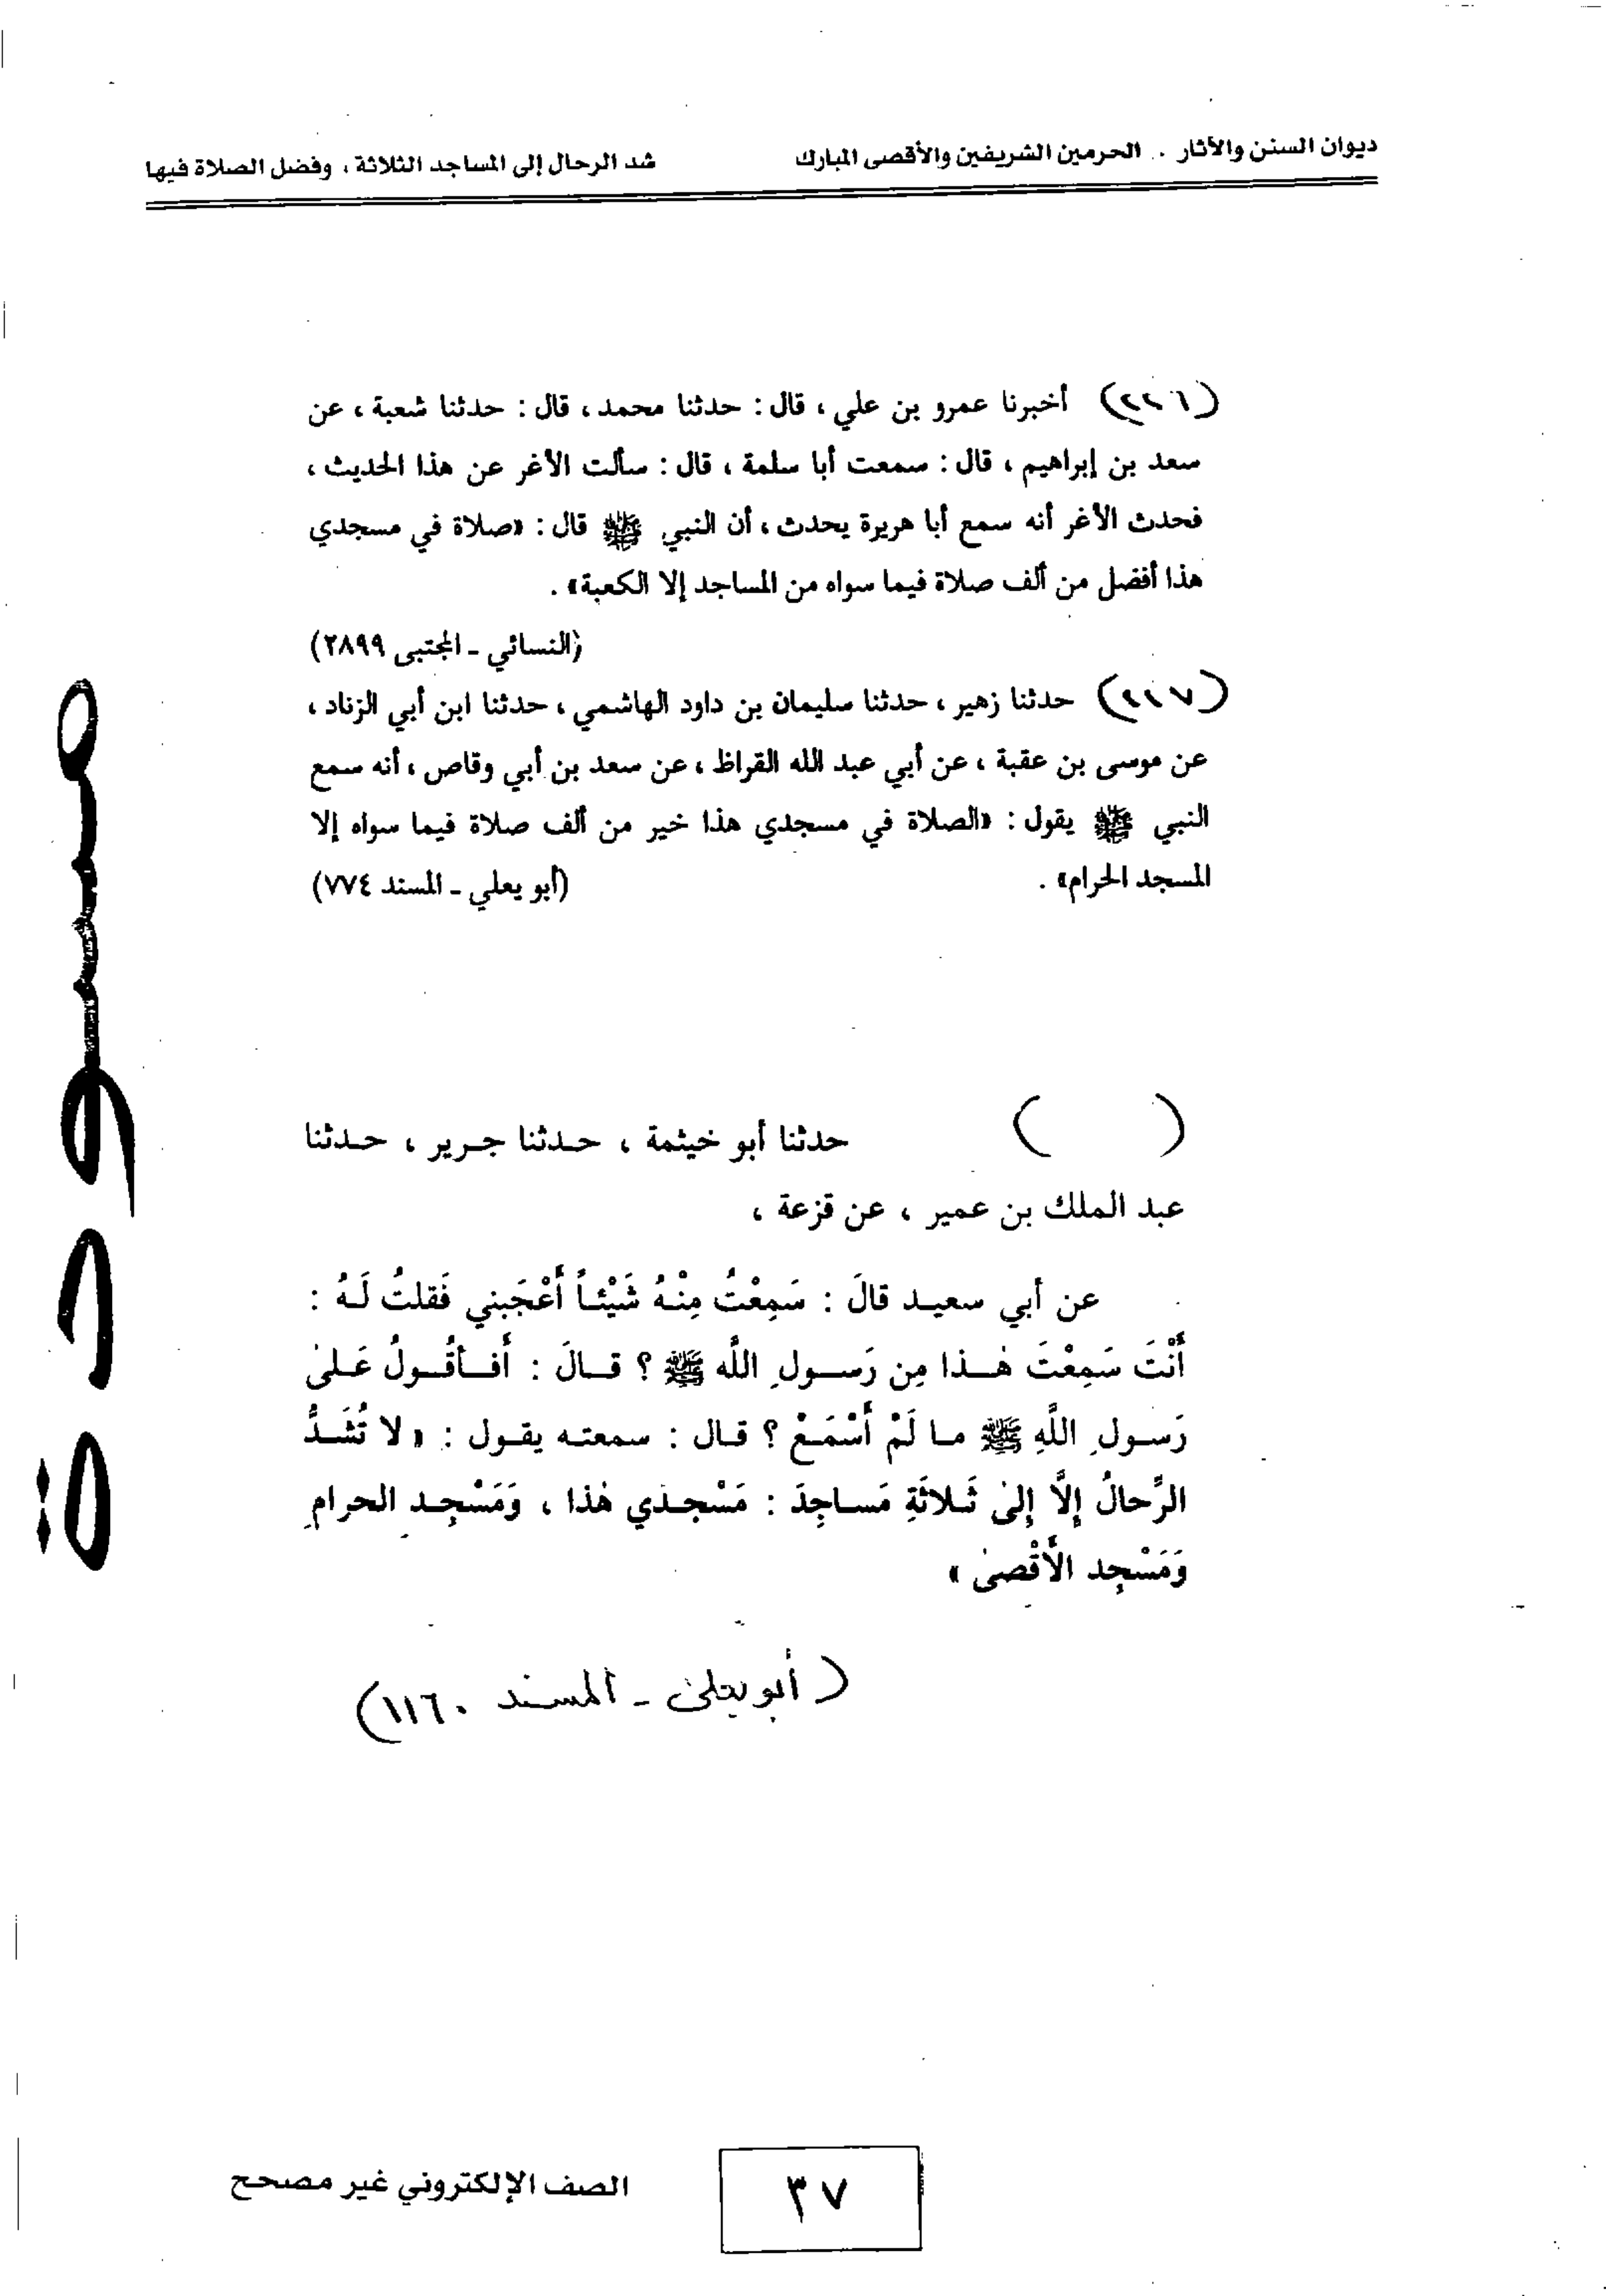 ديوان السنن والآثار .. الحرمين الشريفين والأقصى المبارك
شد الرحال إلى المساجد الثلاثة ، وفضل الصلاة فيها
(٢٢٦) أخبرنا عمرو بن علي ، قال : حدثنا محمد ، قال : حدثنا شعبة ، عن
سعد بن إبراهيم ، قال : سمعت أبا سلمة ، قال : سألت الأغر عن هذا الحديث ،
فحدث الأغر أنه سمع أبا هريرة يحدث ، أن النبي ﷺ قال : «صلاة في مسجدي
هذا أفضل من ألف صلاة فيما سواه من المساجد إلا الكعبة» .
(النسائي - المجتبى ٢٨٩٩)
(٢٢٧) حدثنا زهير ، حدثنا سليمان بن داود الهاشمي ، حدثنا ابن أبي الزناد ،
عن موسى بن عقبة ، عن أبي عبد الله القراظ ، عن سعد بن أبي وقاص ، أنه سمع
النبي ﷺ يقول : «الصلاة في مسجدي هذا خير من ألف صلاة فيما سواه إلا
المسجد الحرام» . (أبو يعلي - المسند ٧٧٤)
( ) حدثنا أبو خيثمة ، حـدثنا جـرير ، حـدثنا
عبد الملك بن عمير ، عن قزعة ،
عن أبي سعيـد قالَ : سَمِعْتُ مِنْـهُ شَيْئـاً أَعْجَبني فَقلتُ لَـهُ :
أَنْتَ سَمِعْتَ هٰـذا مِن رَسـولِ اللَّه ﷺ ؟ قـالَ : أَفـأَقُـولُ عَـلىٰ
رَسـولِ اللَّهِ ﷺ مـا لَمْ أَسْمَـعْ ؟ قـال : سمعتـه يقـول : « لا تُشَـدُّ
الرِّحالُ إِلَّا إِلىٰ ثَـلاثَةِ مَسـاجِدَ : مَسْجـدي هٰذا ، وَمَسْجِـد الحرامِ
وَمَسْجِد الأَقْصىٰ »
(أبو يعلى - المسند ١١٦٠)
مسودة
٣٧
الصف الإلكتروني غير مصحح